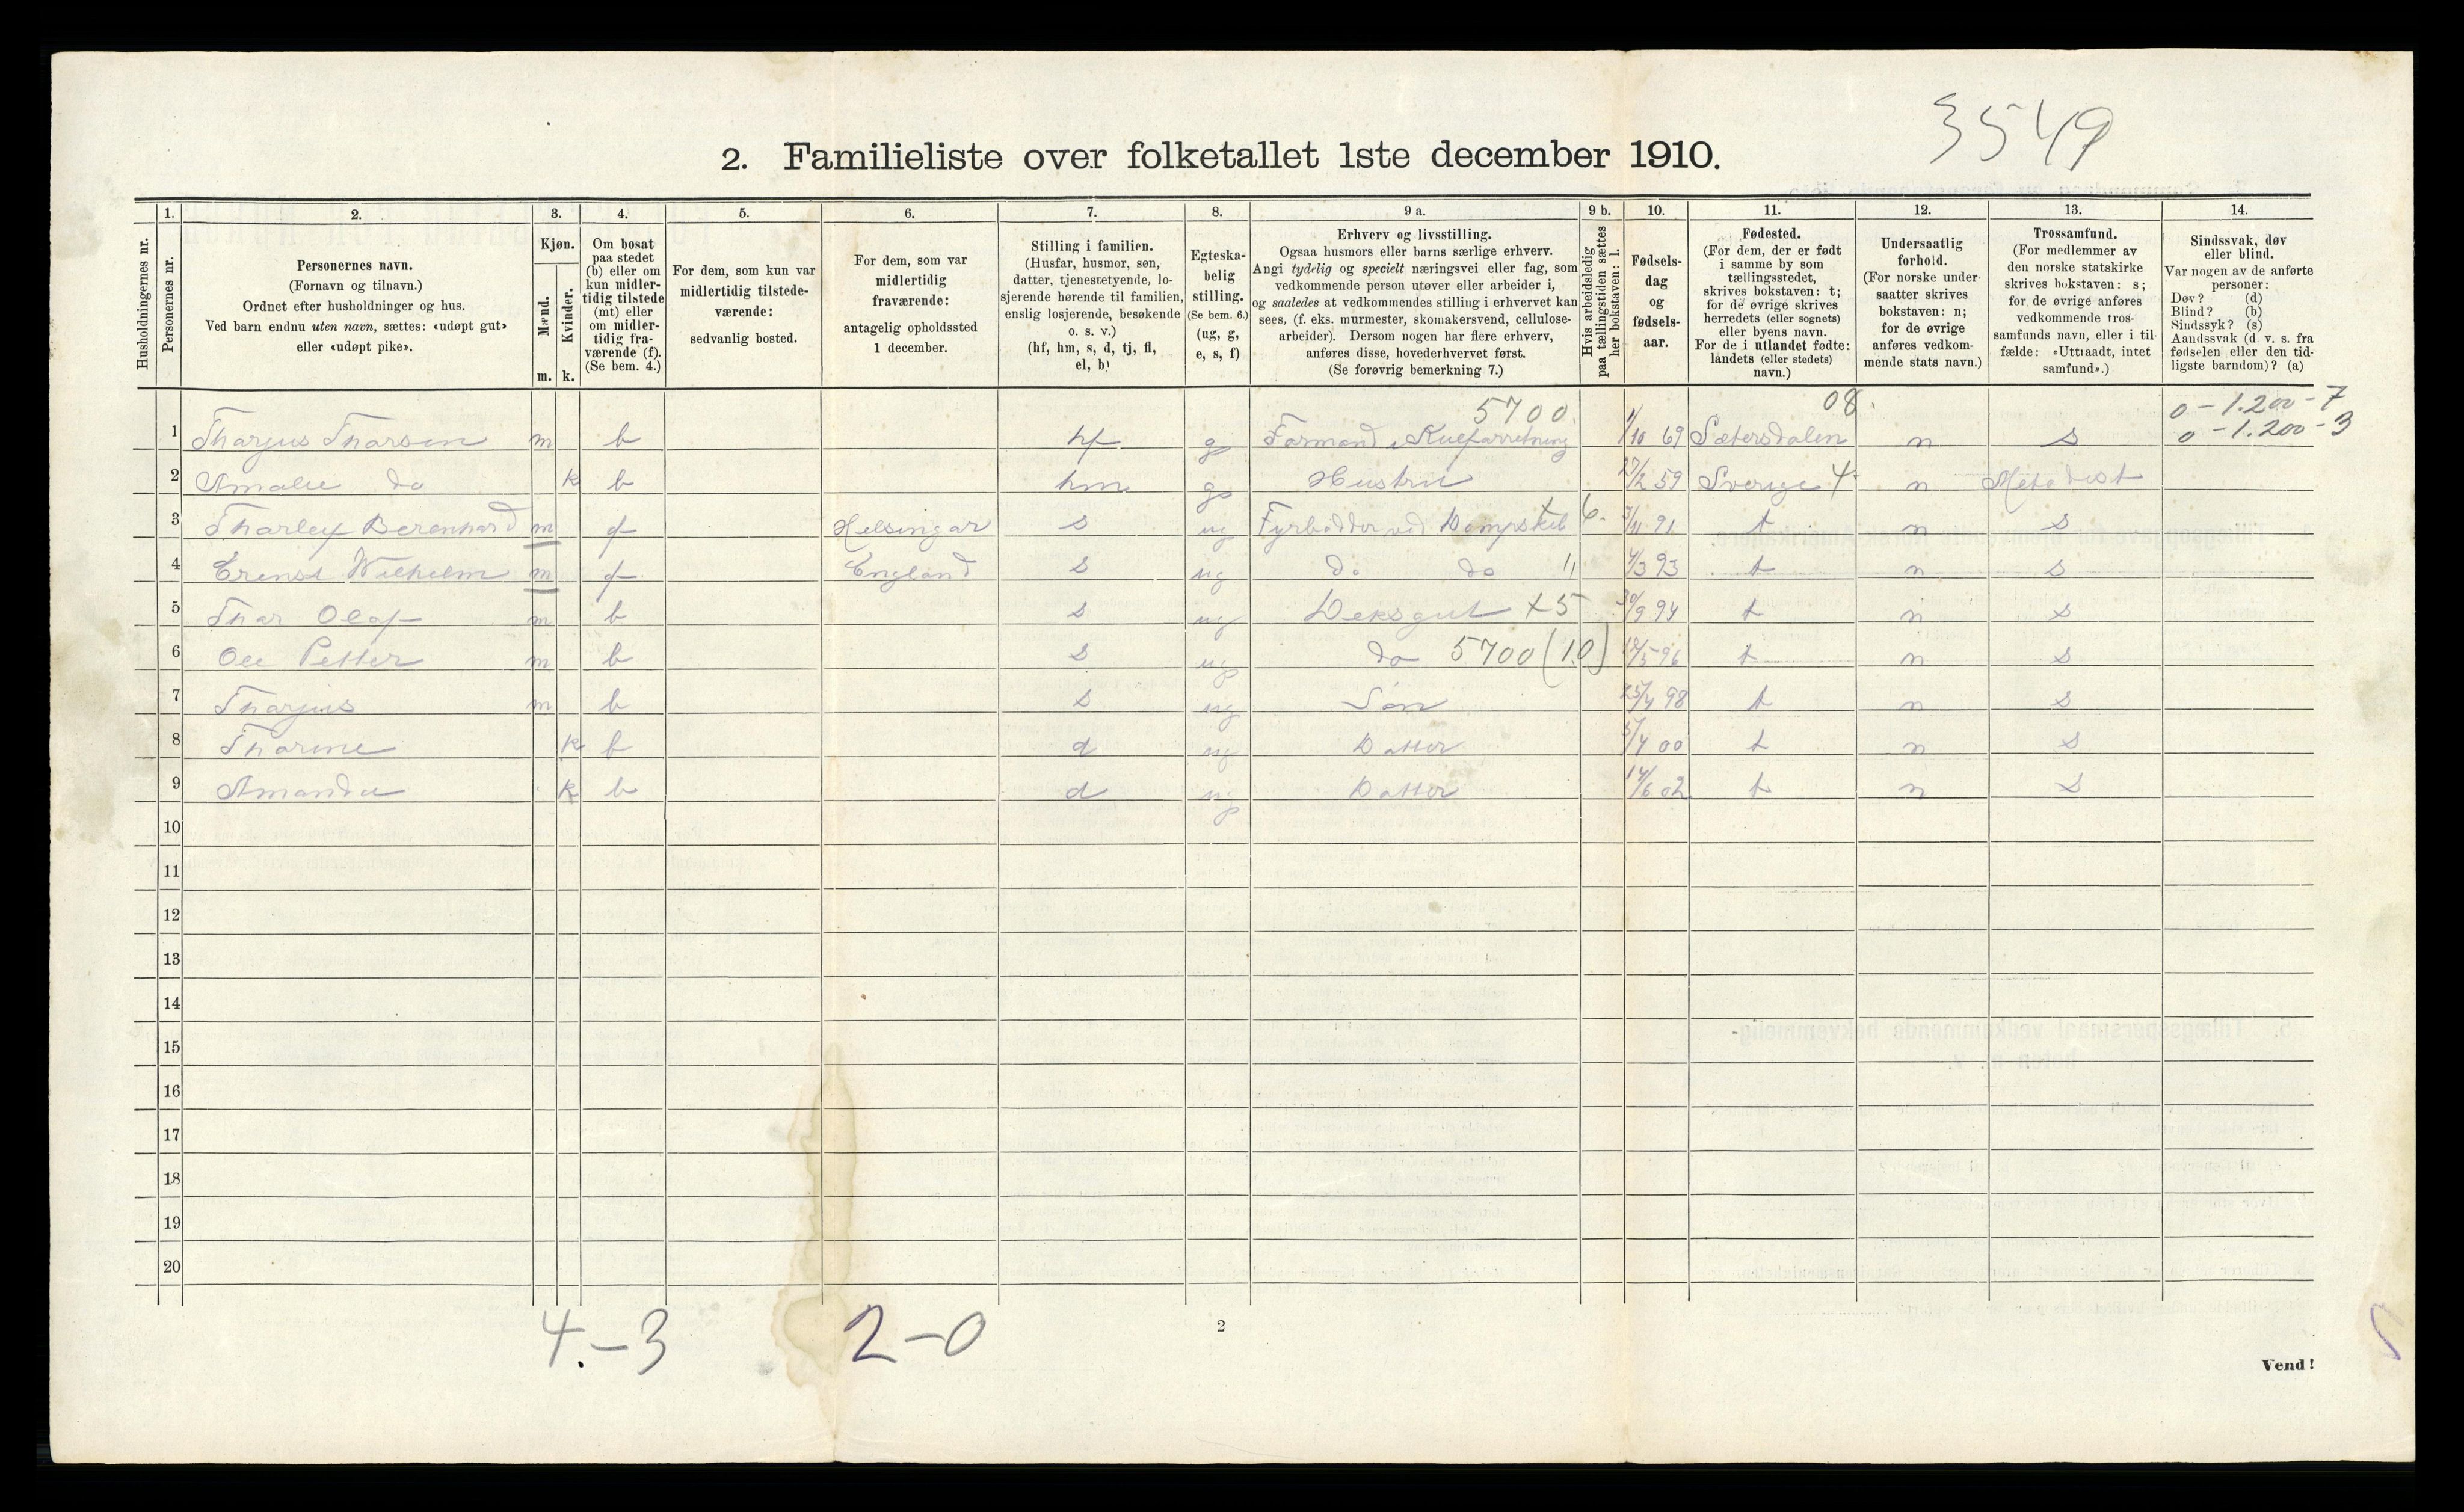 3549
2. Familieliste over folketallet 1ste december 1910.
Husholdningernes nr.
1. Personernes nr.
2. Personernes navn.
(Fornavn og tilnavn.)
Ordnet efter husholdninger og hus.
Ved barn endnu uten navn, sættes: «udøpt gut»
eller «udøpt pike».
3. Kjøn.
Mænd. m.
Kvinder. k.
4. Om bosat
paa stedet
(b) eller om
kun midler-
tidig tilstede
(mt) eller
om midler-
tidig fra-
værende (f).
(Se bem. 4.)
5. For dem, som kun var
midlertidig tilstede-
værende:
sedvanlig bosted.
6. For dem, som var
midlertidig
fraværende:
antagelig opholdssted
1 december.
7. Stilling i familien.
(Husfar, husmor, søn,
datter, tjenestetyende, lo-
sjerende hørende til familien,
enslig losjerende, besøkende
o. s. v.)
(hf, hm, s, d, tj, fl,
el, b)
8. Egteska-
belig
stilling.
(Se bem. 6.)
(ug, g,
e, s, f)
9 a. Erhverv og livsstilling.
Ogsaa husmors eller barns særlige erhverv.
Angi tydelig og specielt næringsvei eller fag, som
vedkommende person utøver eller arbeider i,
og saaledes at vedkommendes stilling i erhvervet kan
sees, (f. eks. murmester, skomakersvend, cellulose-
arbeider). Dersom nogen har flere erhverv,
anføres disse, hovederhvervet først.
(Se forøvrig bemerkning 7.)
9 b. Hvis arbeidsledig
paa tællingstiden sættes
her bokstaven: l.
10. Fødsels-
dag
og
fødsels-
aar.
11. Fødested.
(For dem, der er født
i samme by som
tællingsstedet,
skrives bokstaven: t;
for de øvrige skrives
herredets (eller sognets)
eller byens navn.
For de i utlandet fødte:
landets (eller stedets)
navn.)
12. Undersaatlig
forhold.
(For norske under-
saatter skrives
bokstaven: n;
for de øvrige
anføres vedkom-
mende stats navn.)
13. Trossamfund.
(For medlemmer av
den norske statskirke
skrives bokstaven: s;
for de øvrige anføres
vedkommende tros-
samfunds navn, eller i til-
fælde: «Uttraadt, intet
samfund».)
14. Sindssvak, døv
eller blind.
Var nogen av de anførte
personer:
Døv? (d)
Blind? (b)
Sindssyk? (s)
Aandssvak (d. v. s. fra
fødselen eller den tid-
ligste barndom)? (a)
5700. 08. 0 - 1.200 - 7
1 Tharjus Tharsen m b hf g Formand i Kulforretning 1/10 69 Sætersdalen n s 0 - 1.200 - 3
2 Amalie do k b hm g Hustru 27/2 59 Sverige 4 n Metodist
3 Tharlef Berenhard m f Helsingør s ug Fyrbødder ved Dampskib + 6. 3/11 91 t n s
4 Ernst Wilhelm m f England s ug do do " 4/3 93 t n s
5 Thor Olaf m b s ug Deksgut +5 30/9 94 t n s
6 Ole Petter m b s ug do 5700 (10) 12/5 96 t n s
7 Tharjus m b s ug Søn 25/4 98 t n s
8 Tharine k b d ug Datter 5/4 00 t n s
9 Amanda k b d ug Datter 14/6 02 t n s
10
11
12
13
14
15
16
17
18
19
20
4.-3 2-0
2
Vend!